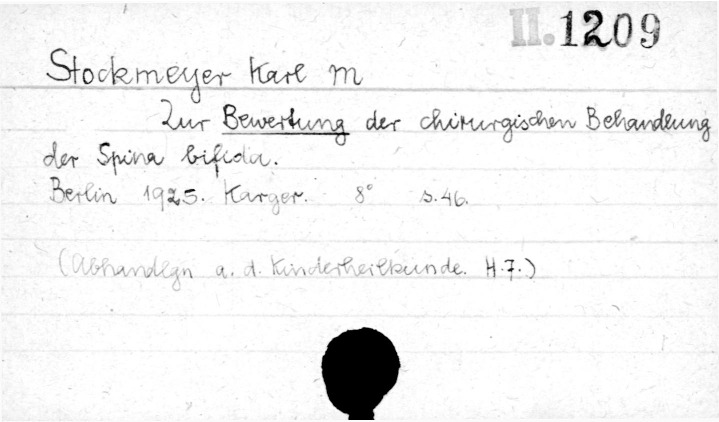 II.1209
Stockmeyer Karl M
Zur Bewertung der chirurgischen Behandlung
der Spina bifida.
Berlin 1925. Karger. 8° s.46.
(Abhandlgn a. d. Kinderheilkunde. H.7.)